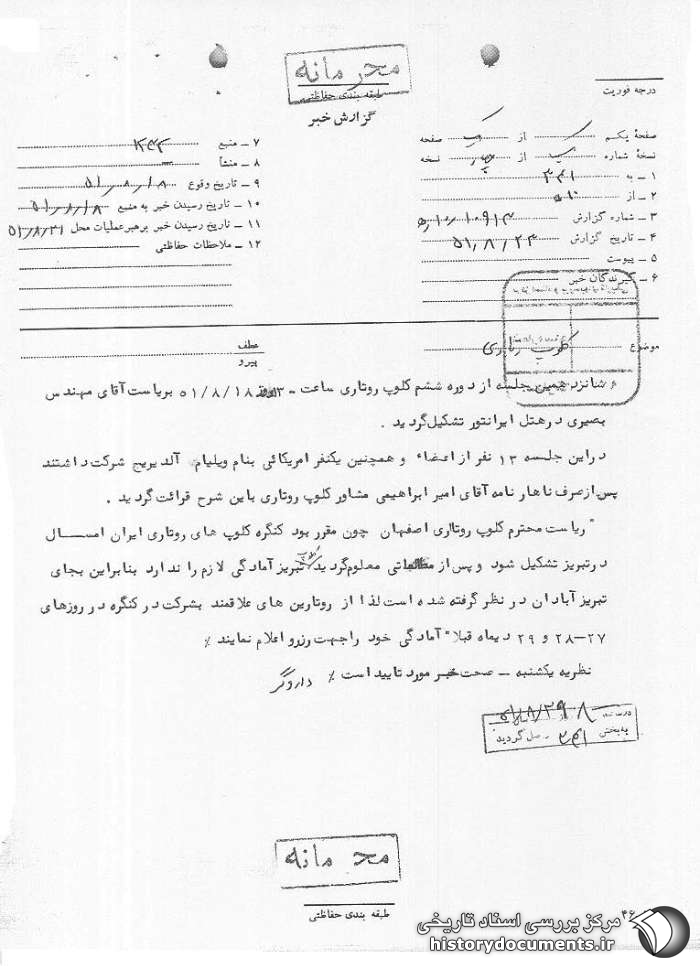 محرمانه
طبقه بندی حفاظتی
گزارش خبر
درجه فوریت
صفحهٔ یکم از یک صفحه
نسخهٔ شماره از نسخه
۱ ـ به ۳۴۱
۲ ـ از
۳ ـ شماره گزارش
۴ ـ تاریخ گزارش ۵۱/۸/۲۳
۵ ـ پیوست
۶ ـ گیرندگان خبر
۷ ـ منبع
۸ ـ منشأ
۹ ـ تاریخ وقوع ۵۱/۸/۱۸
۱۰ ـ تاریخ رسیدن خبر به منبع ۵۱/۸/۱۸
۱۱ ـ تاریخ رسیدن خبر برهبر عملیات محل ۵۱/۸/۲۱
۱۲ ـ ملاحظات حفاظتی
موضوع کلوپ روتاری
عطف
پیرو
شانزدهمین جلسه از دوره ششم کلوپ روتاری ساعت ۵۱/۸/۱۸ بریاست آقای مهندس
بصیری در هتل ایرانتور تشکیل گردید .
در این جلسه ۱۳ نفر از اعضاء و همچنین یکنفر امریکائی بنام ویلیام آلدیریج شرکت داشتند
پس از صرف ناهار نامه آقای امیر ابراهیمی مشاور کلوپ روتاری باین شرح قرائت گردید .
" ریاست محترم کلوپ روتاری اصفهان چون مقرر بود کنگره کلوپ های روتاری ایران امسال
در تبریز تشکیل شود و پس از مطالعاتی معلوم گردید تبریز آمادگی لازم را ندارد بنابراین بجای
تبریز آبادان در نظر گرفته شده است لذا از روتارین های علاقمند بشرکت در کنگره در روزهای
۲۷-۲۸ و ۲۹ دیماه قبلا" آمادگی خود را جهت رزرو اعلام نمایند ٪
نظریه یکشنبه ـ صحت خبر مورد تایید است ٪ داروگر
به بخش ۳۴۱ واصل گردید
محرمانه
طبقه بندی حفاظتی
۴۶
مرکز بررسی اسناد تاریخی
historydocuments.ir